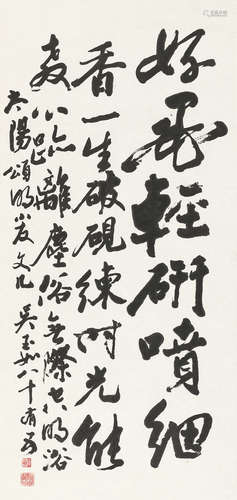 好墨輕研噴細
香一生破硯練時光能
教八法離塵俗無際光明浴
太陽 頌明小友文几 吳玉如八十有